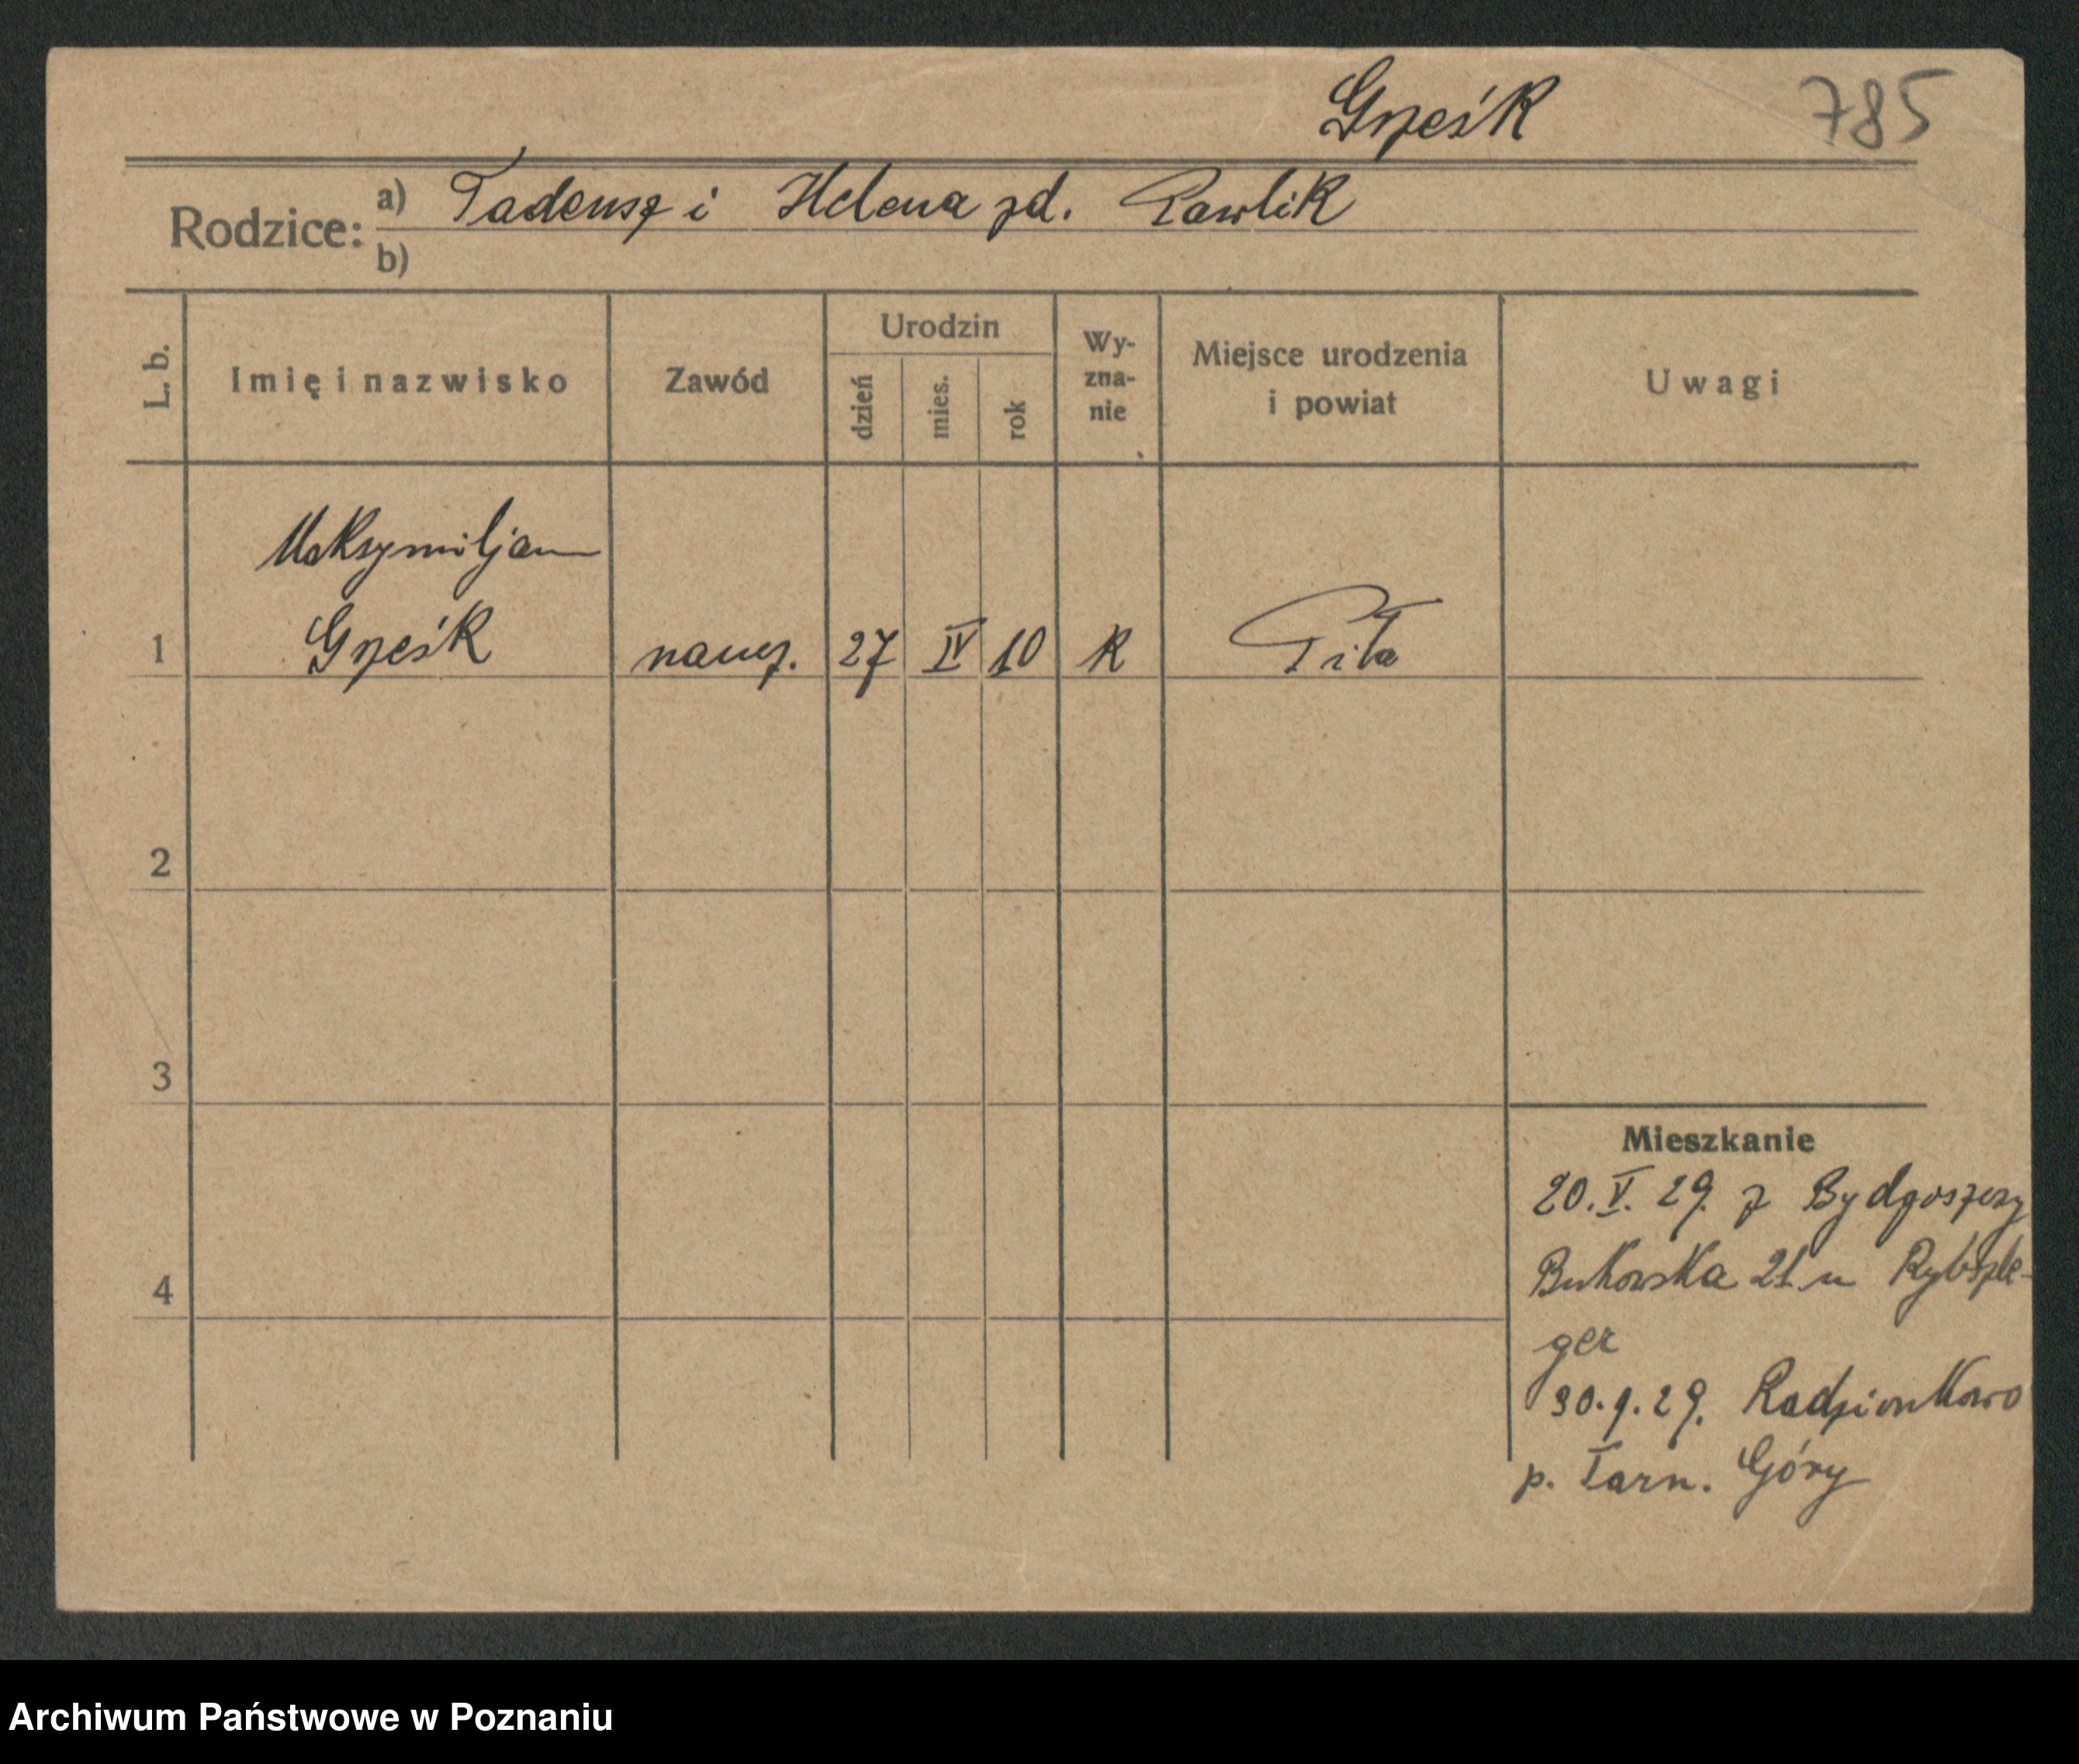 Grześk
785
Rodzice: a) Tadeusz i Helena zd. Pawlik
b)
L. b.
Imię i nazwisko
Zawód
Urodzin
dzień
mies.
rok
Wy-
zna-
nie
Miejsce urodzenia
i powiat
Uwagi
Maksymiljan
1 Grześk naucz. 27 IV 10 R Piła
2
3
4
Mieszkanie
20.V.29. z Bydgoszczy
Bukowska 21 u
ger
30.9.29. Radzionkowo
p. Tarn. Góry
Archiwum Państwowe w Poznaniu